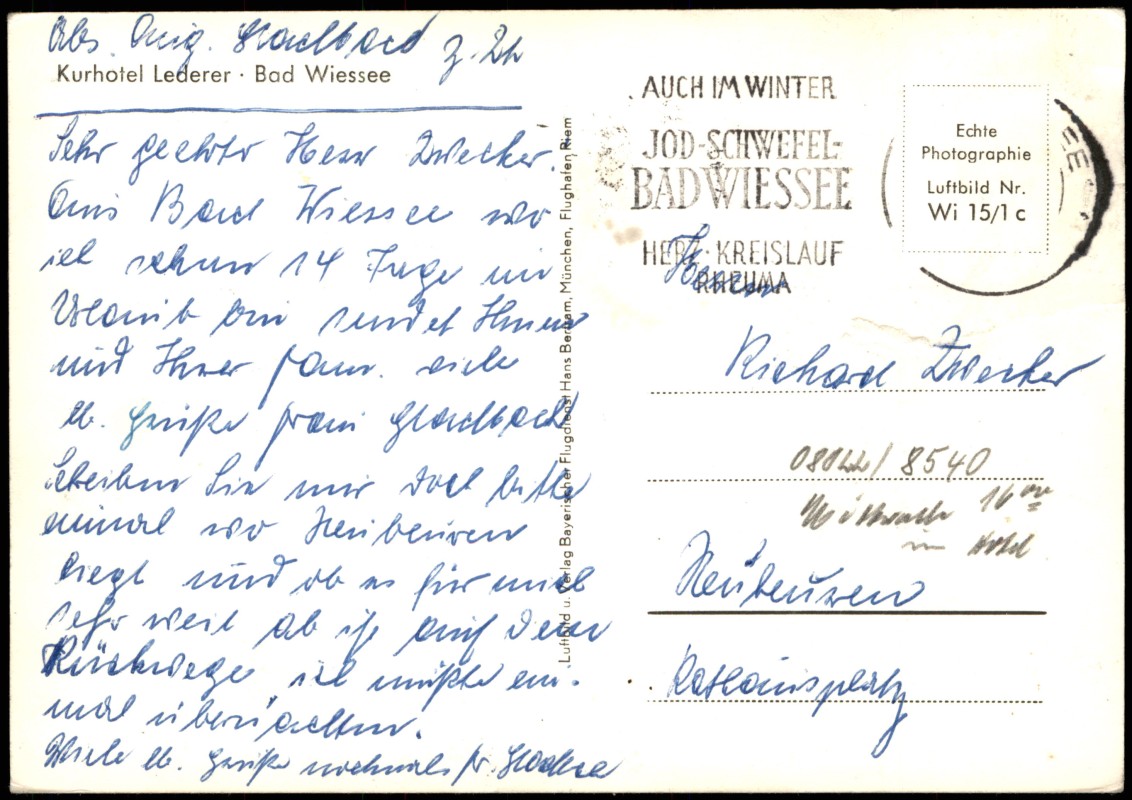 Abs. Aug. Gladbach z. Zt.
Kurhotel Lederer · Bad Wiessee
Sehr geehrter Herr Zwecker.
Aus Bad Wiessee wo
ich schon 14 Tage im
Urlaub bin sendet Ihnen
und Ihrer Fam. viele
lb. Grüße Frau Gladbach
Schreiben Sie mir doch bitte
einmal wo Neubeuren
liegt und ob es für mich
sehr weit ab ist auf dem
Rückwege, ich müßte ein-
mal übernachten.
Viele lb. Grüße nochmals Fr.
Luftbild u. Verlag Bayerischer Flugdienst Hans Bertram, München, Flughafen Riem
AUCH IM WINTER
JOD-SCHWEFEL-
BAD WIESSEE
HERZ · KREISLAUF
RHEUMA
SEE
Echte
Photographie
Luftbild Nr.
Wi 15/1 c
Herrn
Richard Zwecker
08022/8540
Mittwoch 16 Uhr
im Hotel
Neubeuren
Rathausplatz